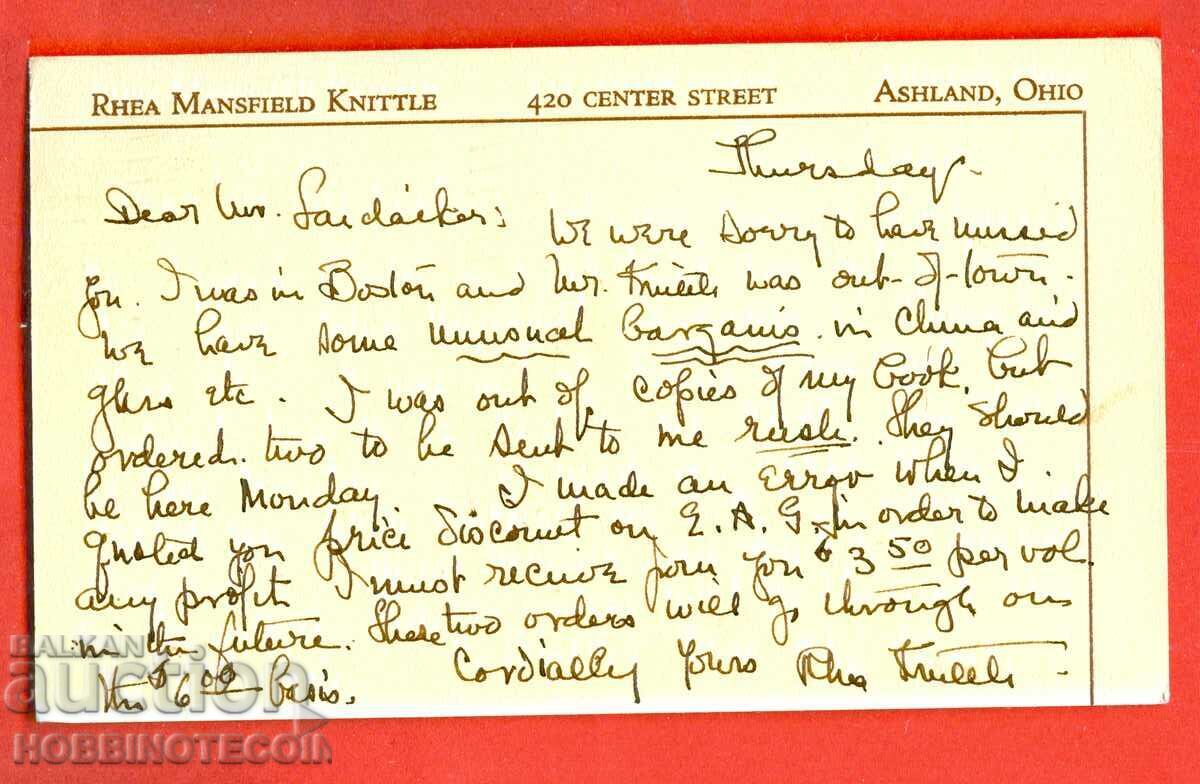 RHEA MANSFIELD KNITTLE 420 CENTER STREET ASHLAND, OHIO
Thursday.
Dear Mr. : We were sorry to have missed
you. I was in Boston and Mr. Knittle was out-of-town.
We have some unusual bargains in China and
glass etc. I was out of copies of my book, but
ordered two to be sent to me rush. They should
be here Monday I made an Error when I
quoted you price discount on E. A. G. In order to make
any profit I must receive from you $3.50 per vol
in the future. These two orders will go through on
the $6.00 basis. Cordially yours Rhea Knittle
BALKAN
auction
HOBBINOTECOIN